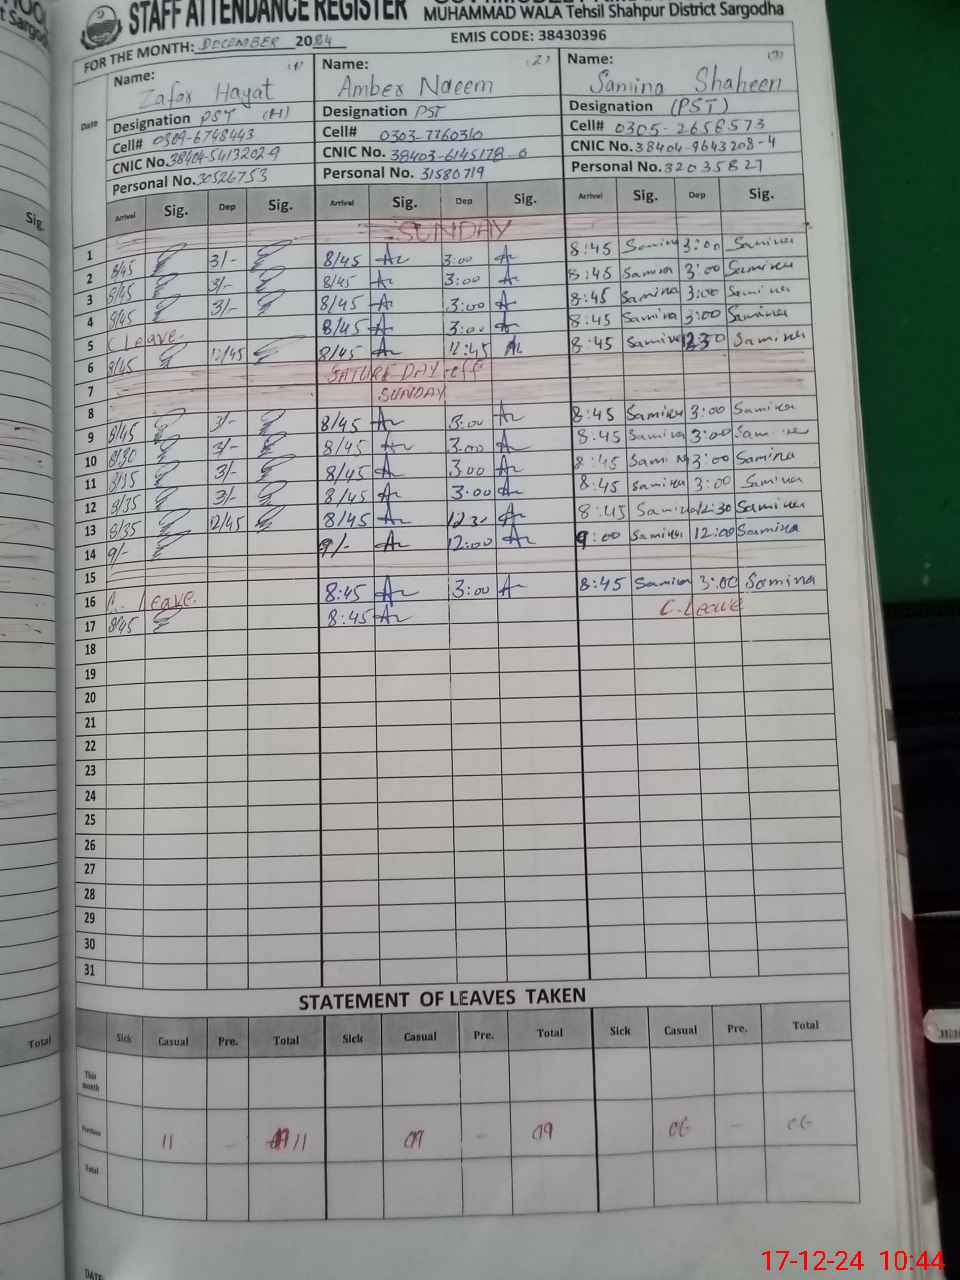 STAFF ATTENDANCE REGISTER
MUHAMMAD WALA Tehsil Shahpur District Sargodha
t Sargod
FOR THE MONTH: DECEMBER 2024 EMIS CODE: 38430396
Date Name: Zafar Hayat (1) Name: Amber Naeem (2) Name: Samina Shaheen (3)
Designation PST (H) Designation PST Designation (PST)
Cell# Cell# 0303-7760310 Cell# 0305-2658573
CNIC No. CNIC No. CNIC No. 38404-9643208-4
Personal No. 30526753 Personal No. 31580719 Personal No. 32035827
Sig. Arrival Sig. Dep Sig. Arrival Sig. Dep Sig. Arrival Sig. Dep Sig.
1 SUNDAY
2 8/45 3/- 8/45 3:00 8:45 Samina 3:00 Samina
3 8/45 3/- 8/45 3:00 8:45 Samina 3:00 Samina
4 8/45 3/- 8/45 3:00 8:45 Samina 3:00 Samina
5 C Leave. 8/45 3:00 8:45 Samina 3:00 Samina
6 8/45 12/45 8/45 12:45 8:45 Samina 1230 Samina
7 SATUREDAY off
8 SUNDAY
9 8/45 3/- 8/45 3:00 8:45 Samina 3:00 Samina
10 8/30 3/- 8/45 3:00 8:45 Samina 3:00 Samina
11 8/35 3/- 8/45 3:00 8:45 Samina 3:00 Samina
12 8/35 3/- 8/45 3:00 8:45 Samina 3:00 Samina
13 8/35 12/45 8/45 8:45 Samina 12:30 Samina
14 9/- 9/- 12:00 9:00 Samina 12:00 Samina
15
16 C. Leave. 8:45 3:00 8:45 Samina 3:00 Samina
17 8/45 8:45 C. Leave
18
19
20
21
22
23
24
25
26
27
28
29
30
31
STATEMENT OF LEAVES TAKEN
Total Sick Casual Pre. Total Sick Casual Pre. Total Sick Casual Pre. Total
This month
Previous 11 - 11 - 09 06 - 06
Total
DATE
17-12-24 10:44